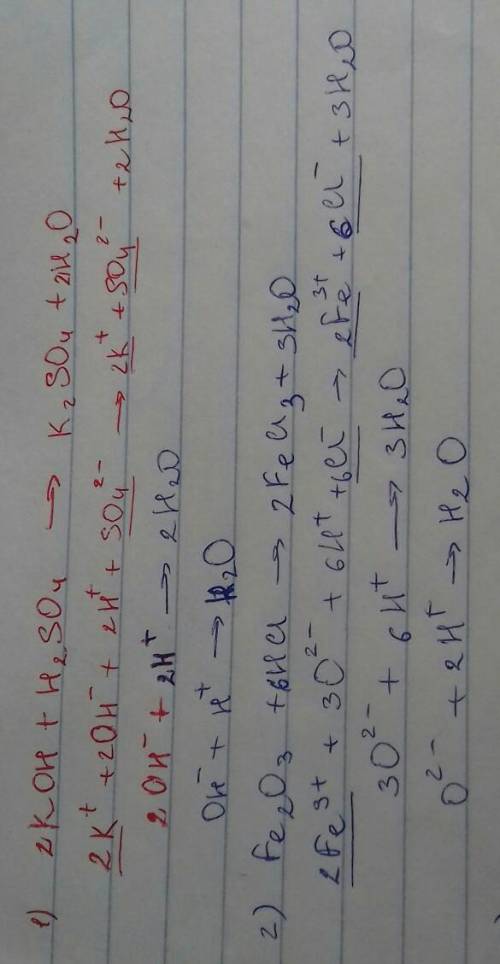 1) 2KOH + H₂SO₄ → K₂SO₄ + 2H₂O
2K⁺ + 2OH⁻ + 2H⁺ + SO₄²⁻ → 2K⁺ + SO₄²⁻ + 2H₂O
2OH⁻ + 2H⁺ → 2H₂O
OH⁻ + H⁺ → H₂O
2) Fe₂O₃ + 6HCl → 2FeCl₃ + 3H₂O
2Fe³⁺ + 3O²⁻ + 6H⁺ + 6Cl⁻ → 2Fe³⁺ + 6Cl⁻ + 3H₂O
3O²⁻ + 6H⁺ → 3H₂O
O²⁻ + 2H⁺ → H₂O